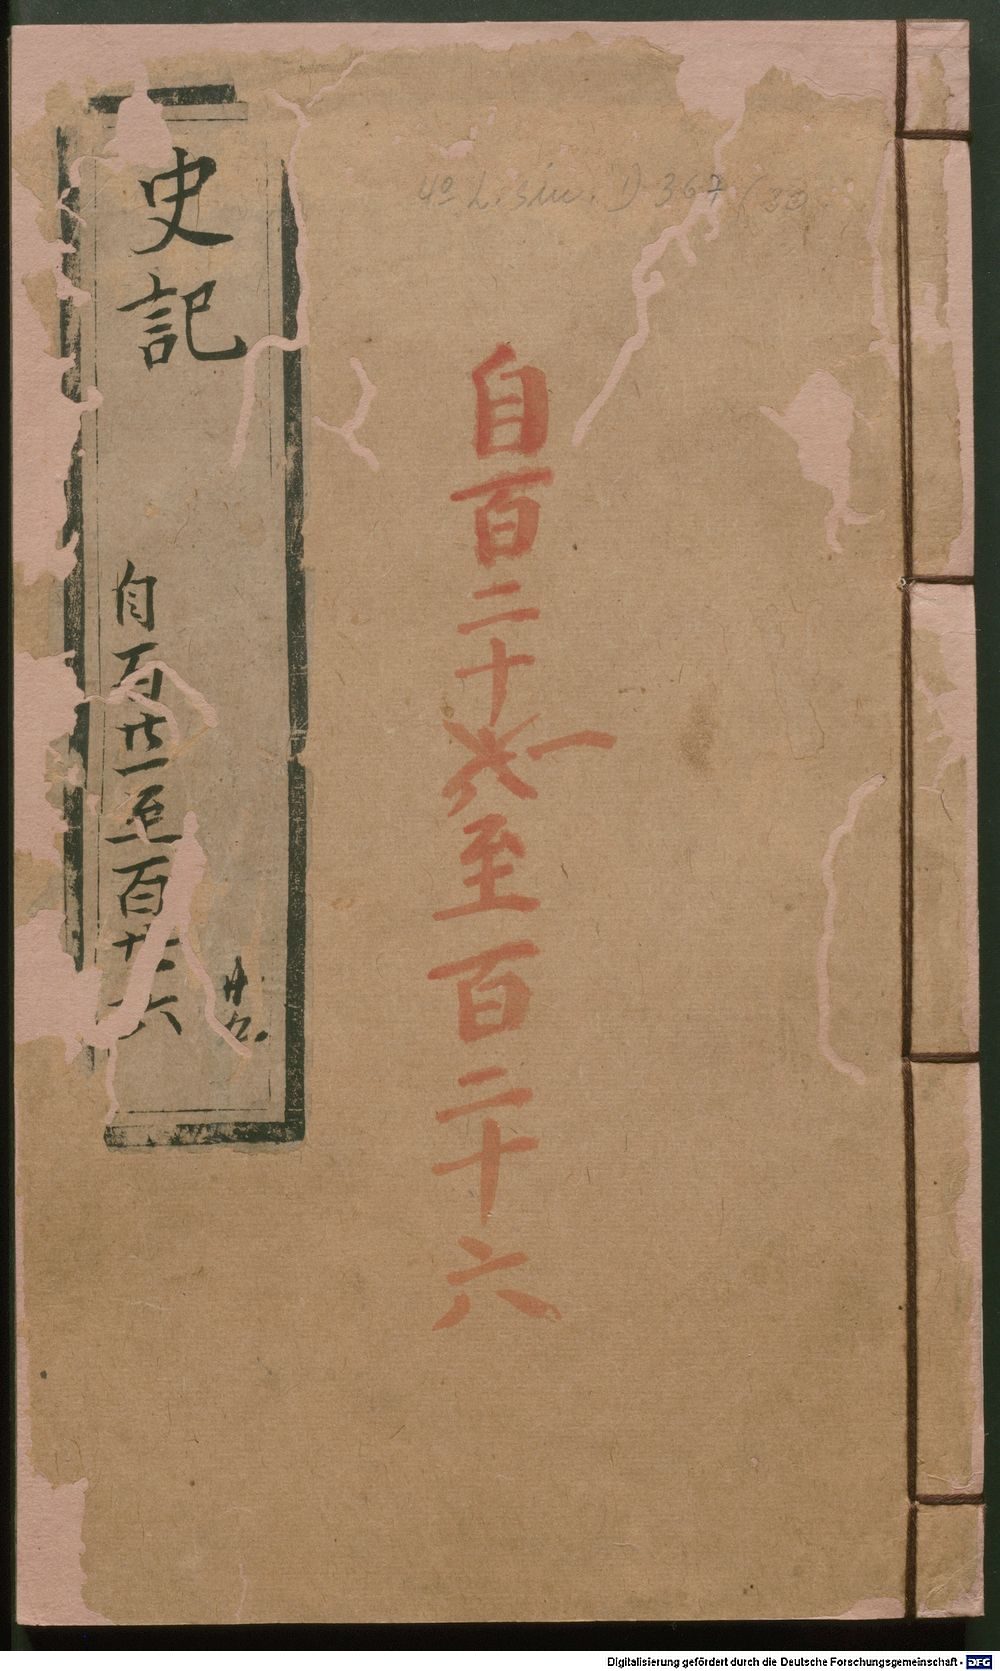 史記
自百廿一至百廿六
4º L. sin. D 367 (30
自百二十一至百二十六
Digitalisierung gefördert durch die Deutsche Forschungsgemeinschaft - DFG